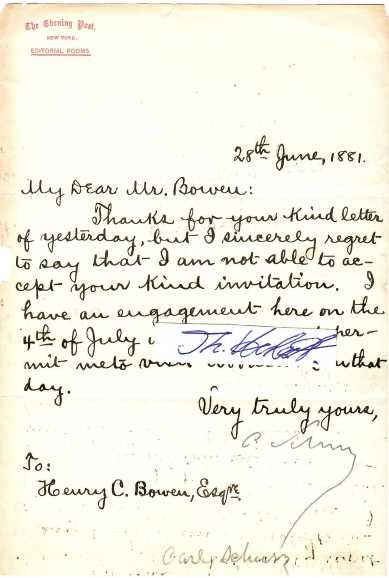 The Evening Post,
NEW YORK.
EDITORIAL ROOMS
28th June, 1881.
My Dear Mr. Bowen:
Thanks for your kind letter
of yesterday, but I sincerely regret
to say that I am not able to ac-
cept your kind invitation. I
have an engagement here on the
4th of July
mit me to that
day.
Very truly yours,
C. Schurz
To:
Henry C. Bowen, Esqre.
Carl Schurz